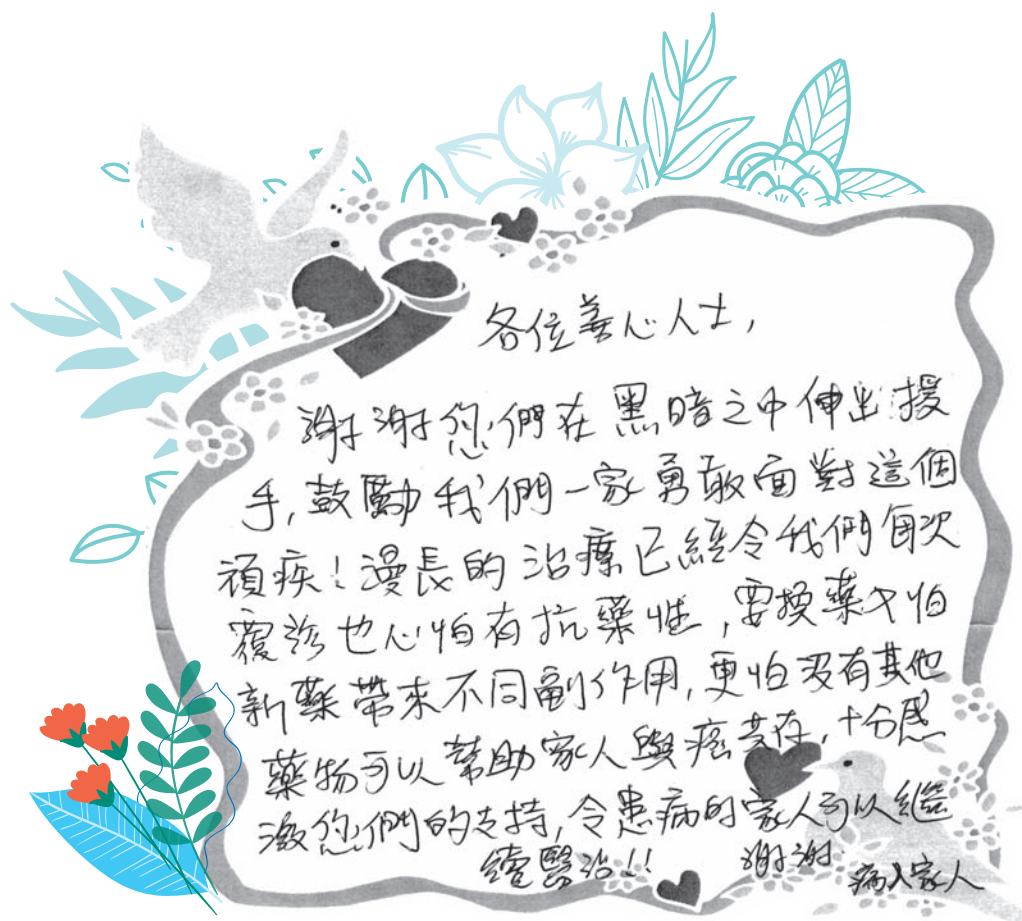 各位善心人士,
謝謝您們在黑暗之中伸出援
手,鼓勵我們一家勇敢面對這個
頑疾!漫長的治療已經令我們每次
覆診也心怕有抗藥性,要換藥又怕
新藥帶來不同副作用,更怕沒有其他
藥物可以幫助家人與癌共存,十分感
激您們的支持,令患病的家人可以繼
續醫治!!
謝謝
病人家人